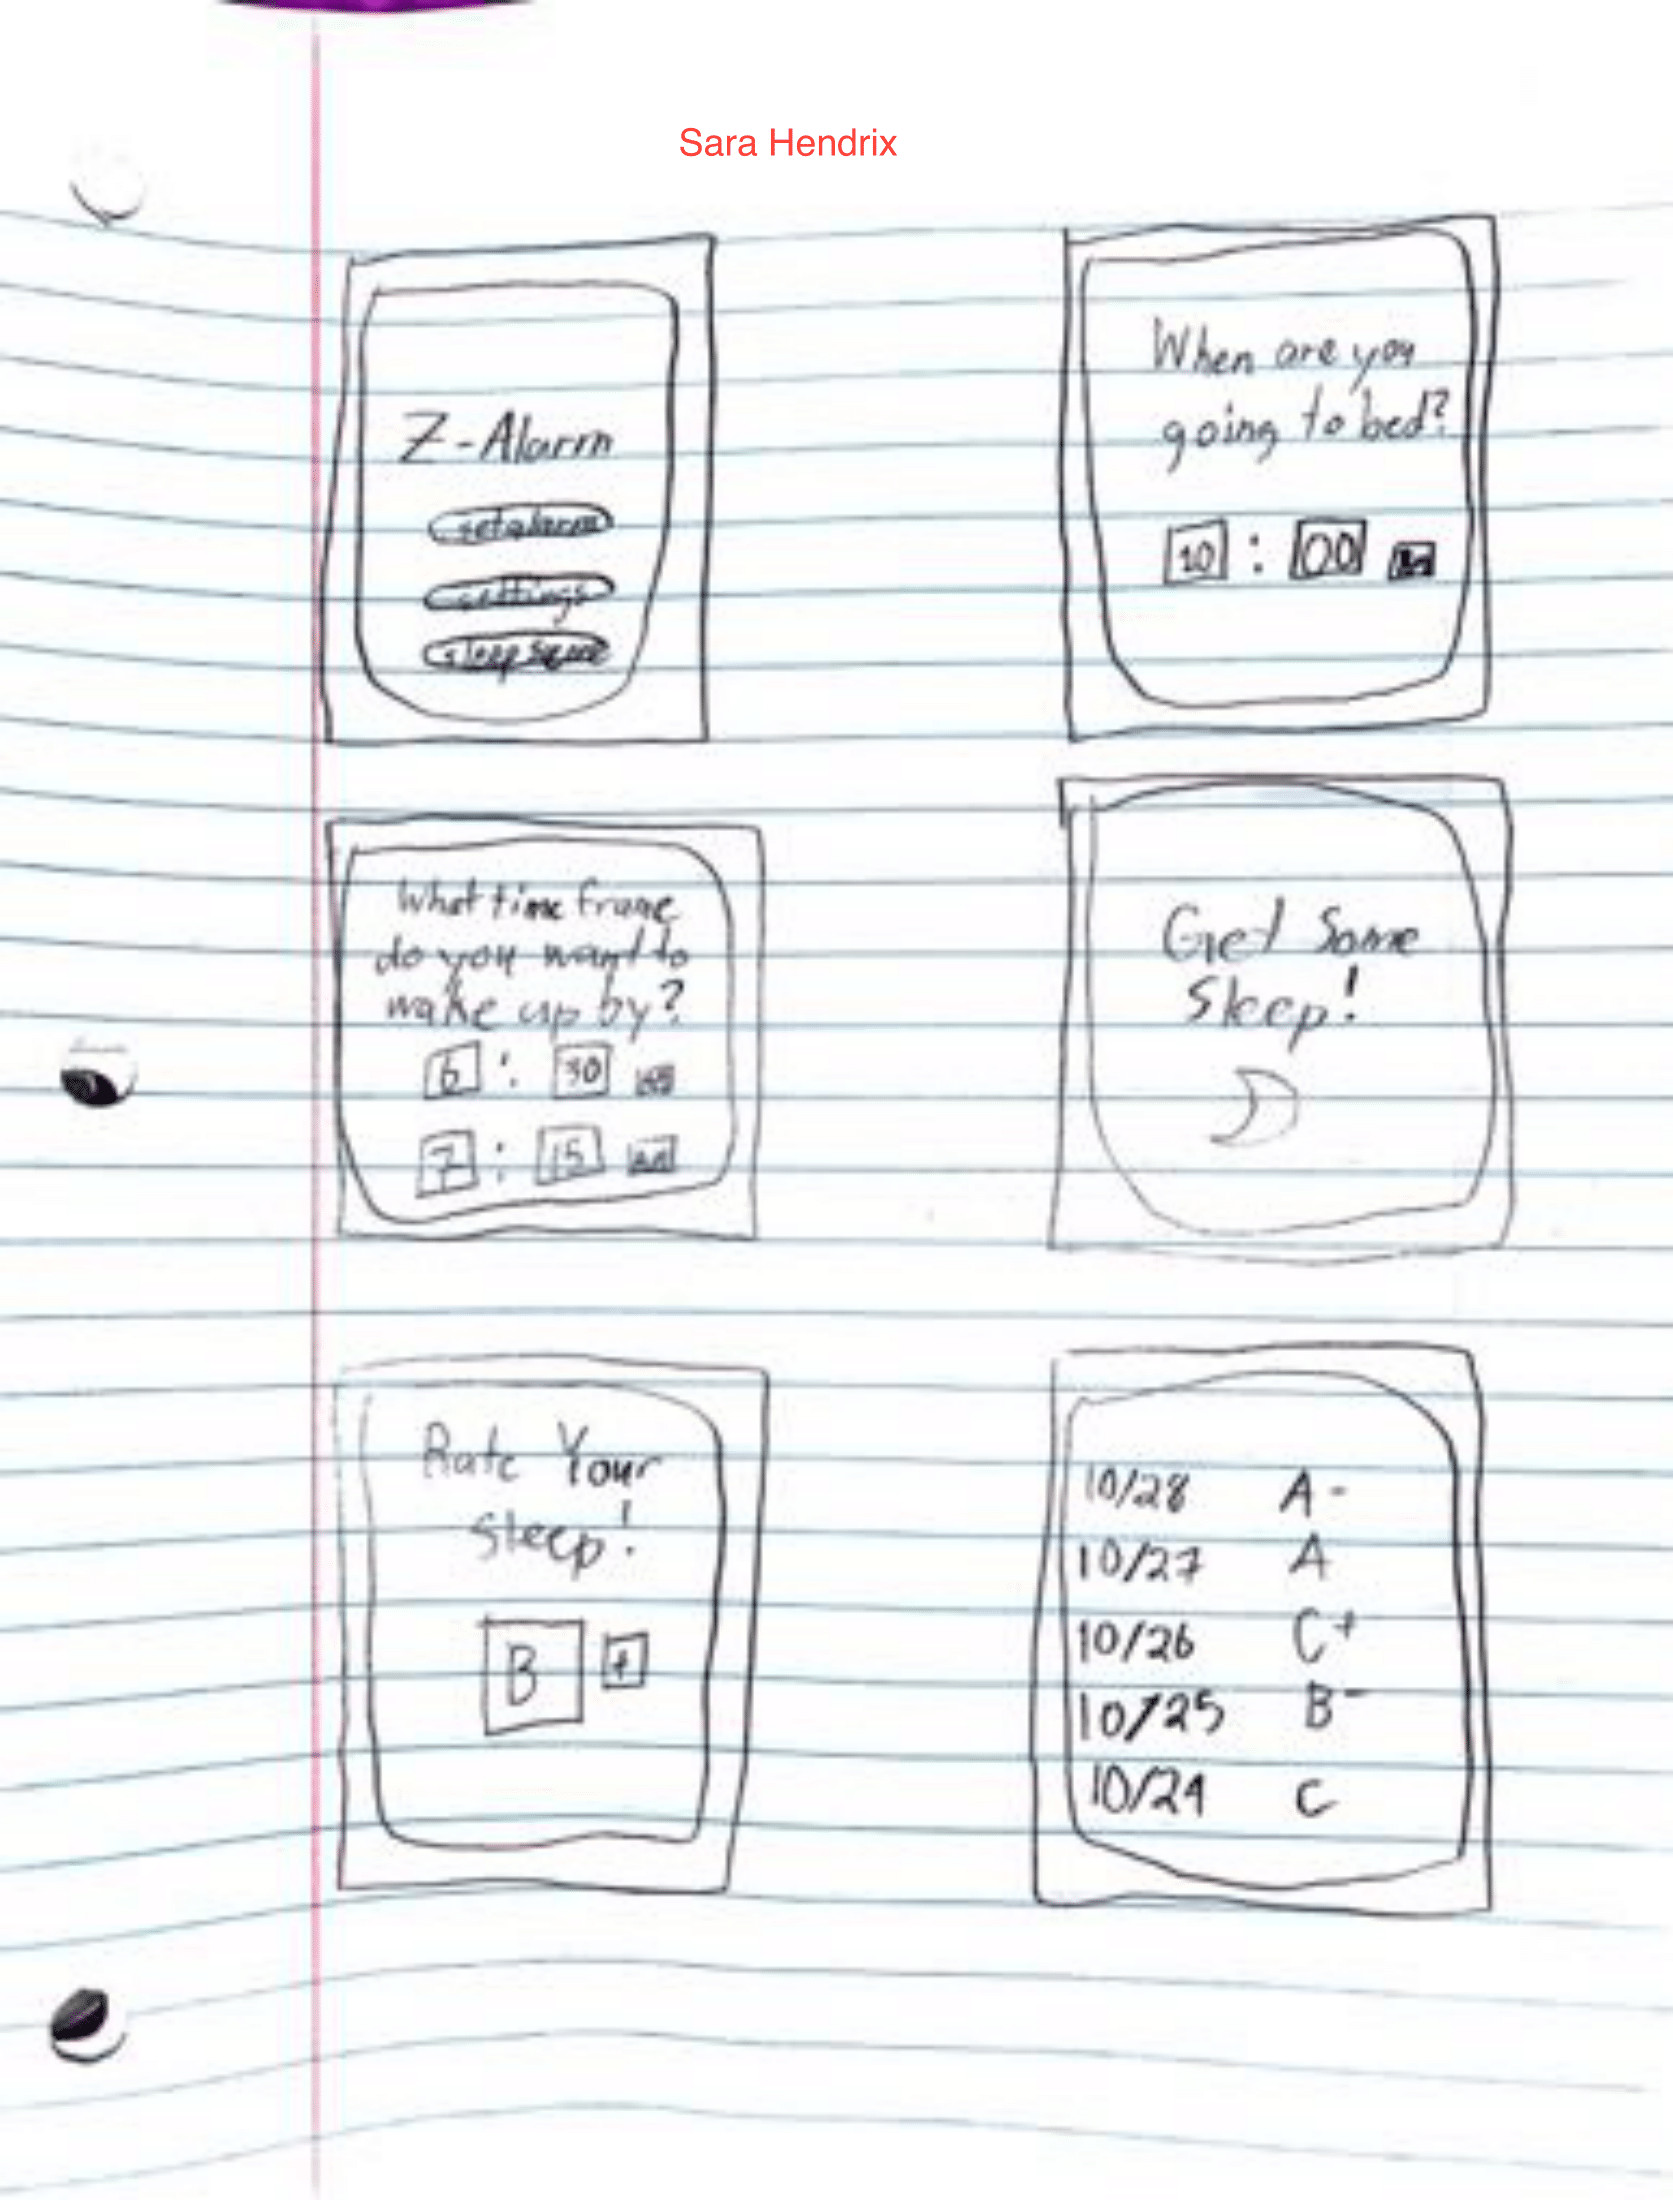 Sara Hendrix
Z-Alarm
set alarm
settings
When are you
going to bed?
10 : 00
What time frame
do you want to
wake up by?
6 : 30 AM
7 : 15 AM
Get Some
Sleep!
Rate Your
Sleep!
B +
10/28 A-
10/27 A
10/26 C+
10/25 B-
10/24 C